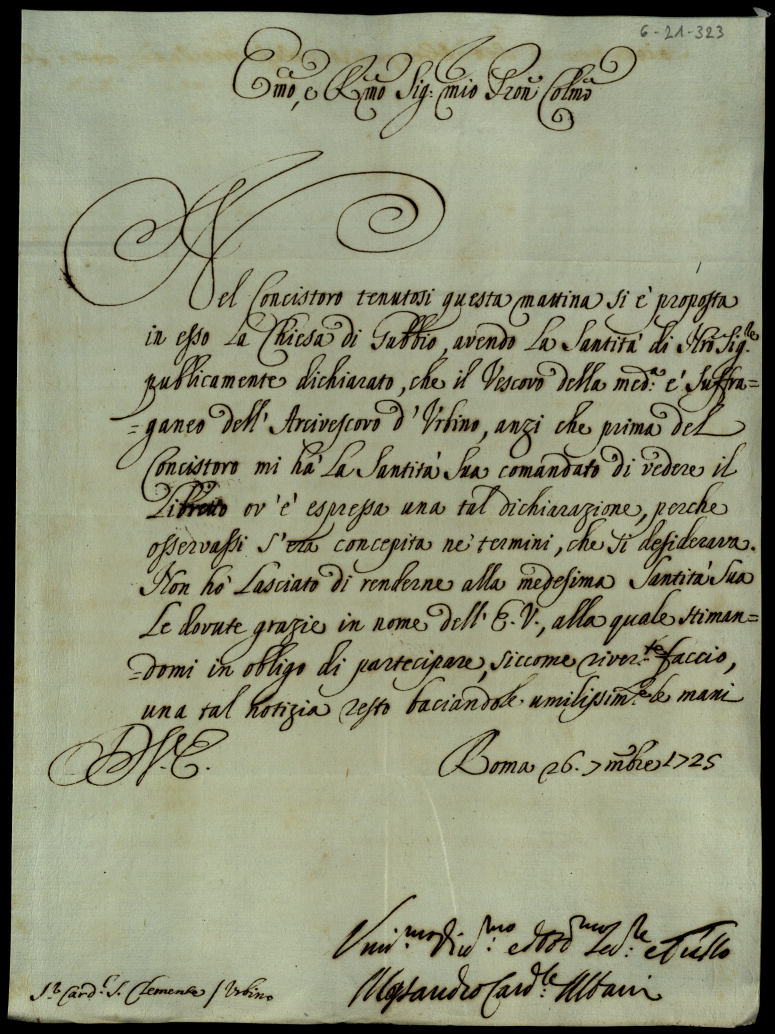 6-21-323
Emo, e Rmo Sig: mio Pron Colmo
Nel Concistoro tenutosi questa mattina si è proposta
in esso la Chiesa di Gubbio, avendo La Santità di Nro Sig.re
publicamente dichiarato, che il Vescovo della med.a e' Suffra=
=ganeo dell' Arcivescovo d' Urbino, anzi che prima del
Concistoro mi hà La Santità Sua comandato di vedere il
Libretto ov' è espressa una tal dichiarazione, perche
osservassi s' era concepita ne' termini, che si desiderava.
Non hò Lasciato di renderne alla medesima Santità Sua
Le dovute grazie in nome dell' E. V., alla quale stiman=
=domi in obligo di partecipare, siccome river.te faccio,
una tal notizia resto baciandole umilissim.e le mani
D. V. E. Roma 26. 7mbre 1725
Umi.mo Div.mo ed Obb.mo Ser.re
Alessandro Card.le Albani
S.r Card.l S. Clemente / Urbino